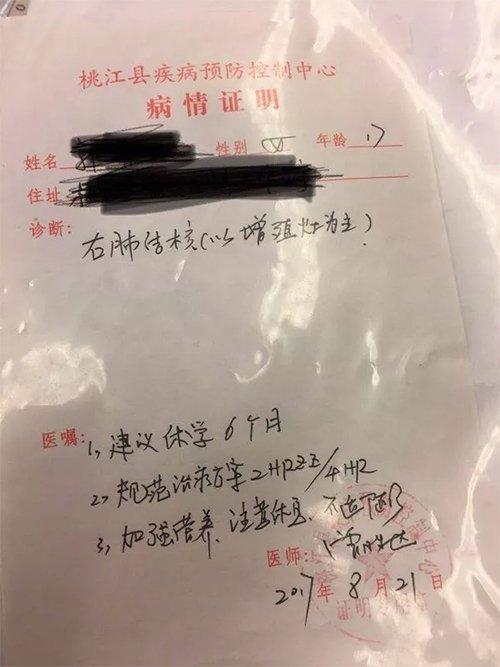 桃江县疾病预防控制中心
病情证明
姓名 性别 女 年龄 17
住址
诊断: 右肺结核(以增殖灶为主)
医嘱: 1, 建议休学6个月
2, 规范治疗方案2HRZE/4HR
3, 加强营养、注意休息、不适随诊
医师:
2017年8月21日
证明专用章